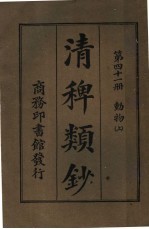 第四十一册 動物(上)
清稗類鈔
商務印書館發行